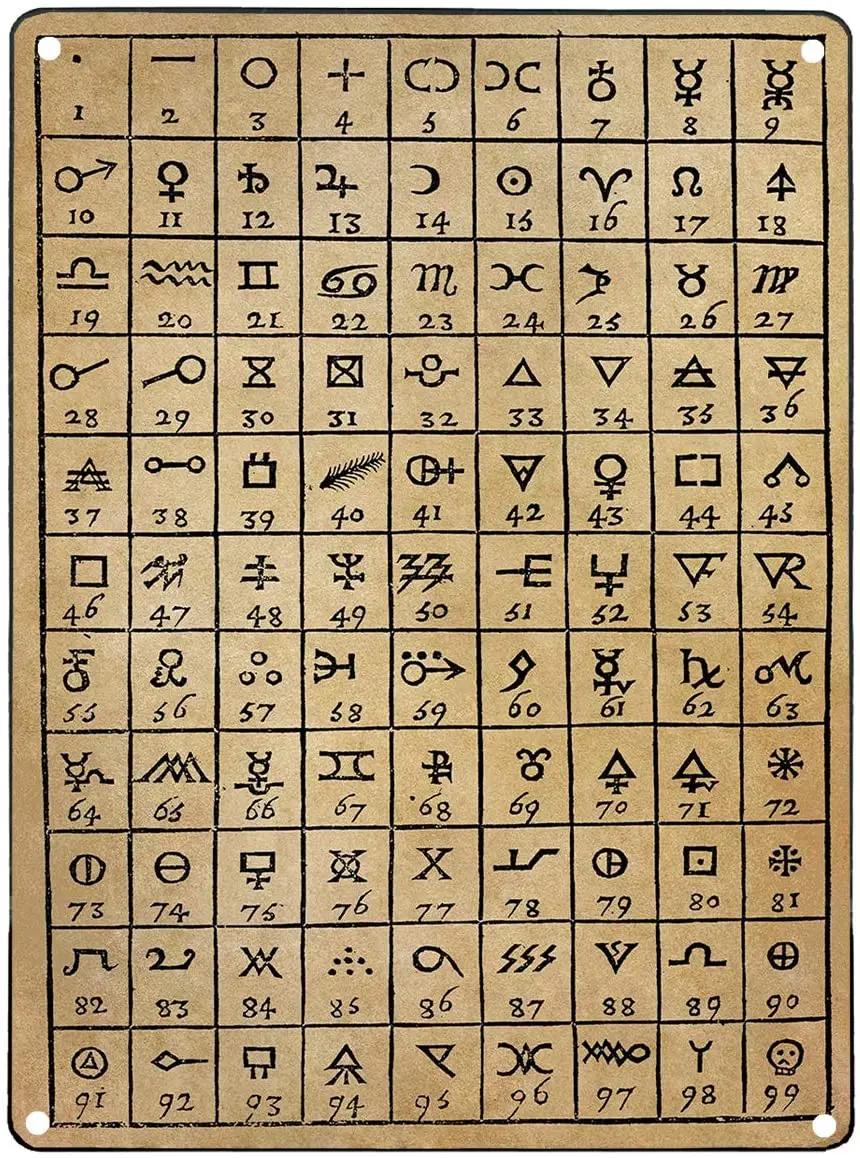 1 2 3 4 5 6 7 8 9
10 11 12 13 14 15 16 17 18
19 20 21 22 23 24 25 26 27
28 29 30 31 32 33 34 35 36
37 38 39 40 41 42 43 44 45
46 47 48 49 50 51 52 53 54
55 56 57 58 59 60 61 62 63
64 65 66 67 68 69 70 71 72
73 74 75 76 77 78 79 80 81
82 83 84 85 86 87 88 89 90
91 92 93 94 95 96 97 98 99